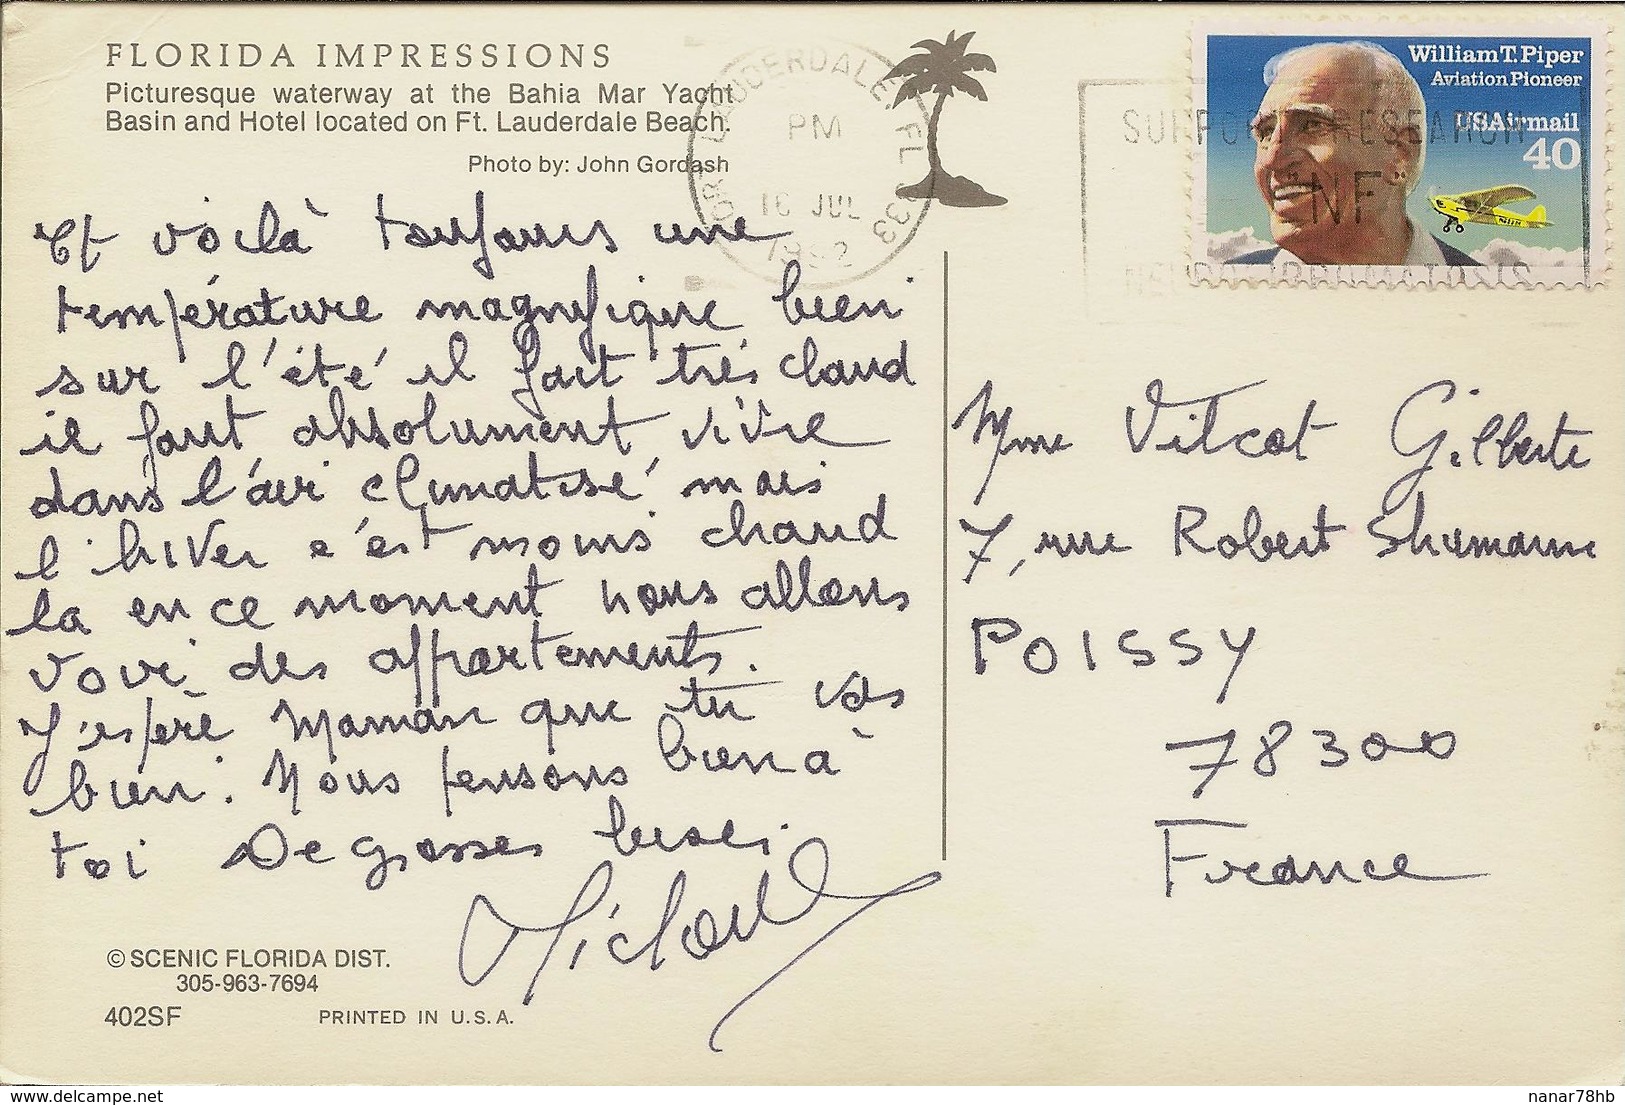 FLORIDA IMPRESSIONS
Picturesque waterway at the Bahia Mar Yacht
Basin and Hotel located on Ft. Lauderdale Beach.
Photo by: John Gordash
FORT LAUDERDALE, FL 333
PM
16 JUL
1992
SUPPORT RESEARCH
"NF"
NEUROFIBROMATOSIS
William T. Piper
Aviation Pioneer
USAirmail
40
Et voilà toujours une
température magnifique bien
sur l'été il fait très chaud
il faut absolument vivre
dans l'air climatisé mais
l'hiver c'est moins chaud
la en ce moment nous allons
voir des appartements.
J'espère Maman que tu vas
bien. Nous pensons bien à
toi De grosses bises
Mme Vitcot Gilberte
7, rue Robert Shumann
POISSY
78300
France
© SCENIC FLORIDA DIST.
305-963-7694
402SF
PRINTED IN U.S.A.
www.delcampe.net
nanar78hb